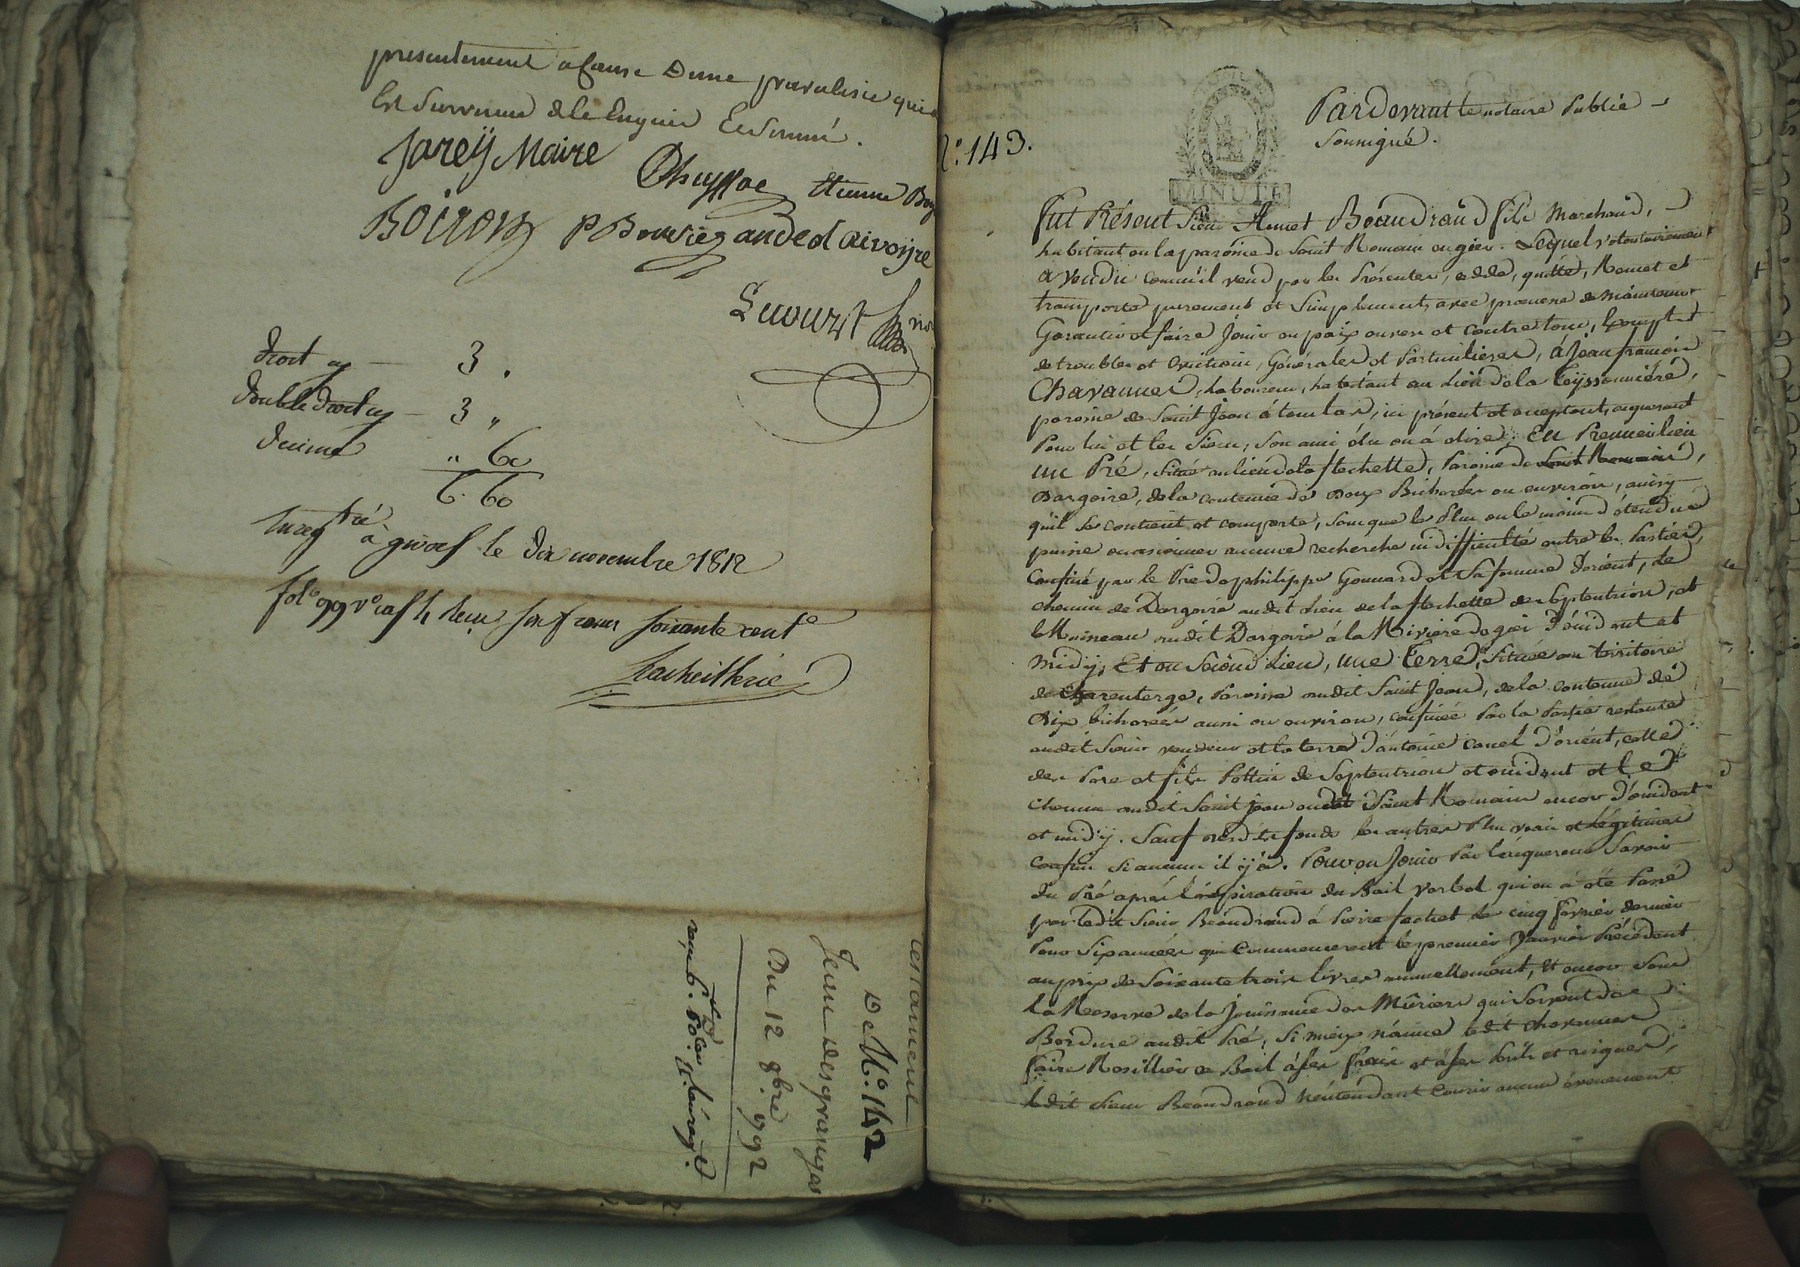 presentement a Cause Dune paralisie qui
lui Survenue de le Enquier Ee Sommé.
Jareÿ Maire
Chuyssac Etienne Boy
BOiron P Bouvier ande d Rivoÿre
Lecourt
droit cy — 3 .
double droit cy — 3 "
decime " 60
6. 60
Enregtré à givors le dix novembre 1812
folo 99 vo cas 4 Recu six francs soixante centes
testament
De No. 142
Jeane desgranges
Du 12 8bre 1792
N°. 143.
MINUTE
Pardevant le notaire Public
Soussigné.
Fut Présent Sieur Aimet Beaudrand fils Marchand,
habitant en la paroisse de Saint Romain en gier. Lequel volontairement
a vendu comme il vend par les Présentes, cede, quitte, Remet et
transporte purement et Simplement, avec promesse de maintenir
Garantir et faire Jouir en paix envers et contre tous, Exempt
de troubles et Evictions, Générales et Particulieres, à Jean françois
Chavannes, laboureur, habitant au Lieu de la Teyssonniére,
paroisse de Saint Jean à toulas, ici présent et acceptant, acquerant
Pour lui et les Siens, Son ami élu ou à élire. En Premier lieu
un Pré, situé au lieu de la flechette, Paroisse de Saint Romain,
Dargoire, de la contenue de Deux Bicherées ou environ, ainsy
qu'il se contient et comporte, sans que le Plus ou le moins d'étendue
puisse occasionner aucune recherche ni difficulté entre les Parties,
Confiné par le Pré de philippe Gonnard et Sa femme d'orient, le
chemin de Dargoire audit Lieu de la flechette de Septentrion, et
le Ruisseau dudit Dargoire à la Riviere de gier d'occident et
midy, Et en Second Lieu, une terre, Située au territoire
de Charenterge, Paroisse audit Saint Jean, de la contenue de
Dix bicherées aussi ou environ, confinée Par la Partie restante
audit Sieur vendeur et la terre d'antoine canel d'orient, celle
des Pere et fils Pottin de Septentrion et occident et le
chemin audit Saint Jean audit Saint Romain encor d'occident
et midÿ. Sauf desdits fonds les autres Plus vrais et Légitimes
confins Si aucuns il ÿ a. Pour en Jouir Par l'acquereur Savoir
du Pré après l'expiration du Bail verbal qui en à été Passé
par ledit Sieur Beaudrand à Pierre fachet le cinq fevrier dernier
Pour Six années qui Commencerent le premier Janvier Précedent
au prix de Soixante trois livres annuellement, Et encor Sous
la Reserve de la Jouissance des Mûriers qui Servent de
Bordure audit Pré, Si mieux n'aime ledit Chavannes
faire Résillier ce Bail à ses frais et à ses Perils et risques,
ledit Sieur Beaudrand n'entendant Courir aucun évenement